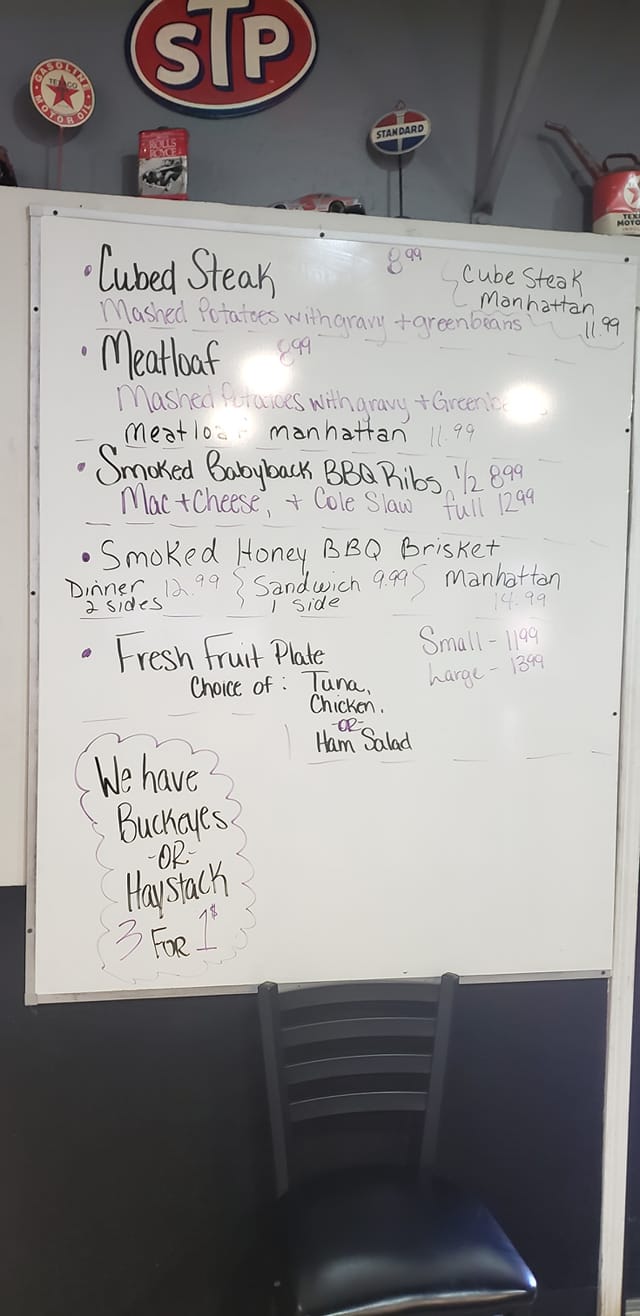 STP
GASOLINE
TEXACO
MOTOR OIL
STANDARD
ROLLS
ROYCE
MOTO
• Cubed Steak 8.99
Cube Steak
Manhattan
11.99
Mashed Potatoes with gravy + greenbeans
• Meatloaf 8.99
Mashed Potatoes with gravy + Greenbe
Meatloaf manhattan 11.99
• Smoked Babyback BBQ Ribs 1/2 8.99
Mac + Cheese, + Cole Slaw full 12.99
• Smoked Honey BBQ Brisket
Dinner 12.99 Sandwich 9.99 Manhattan
2 sides 1 side 14.99
• Fresh Fruit Plate Small - 11.99
Large - 13.99
Choice of: Tuna,
Chicken,
-OR-
Ham Salad
We have
Buckeyes
-OR-
Haystack
3 FOR 1$